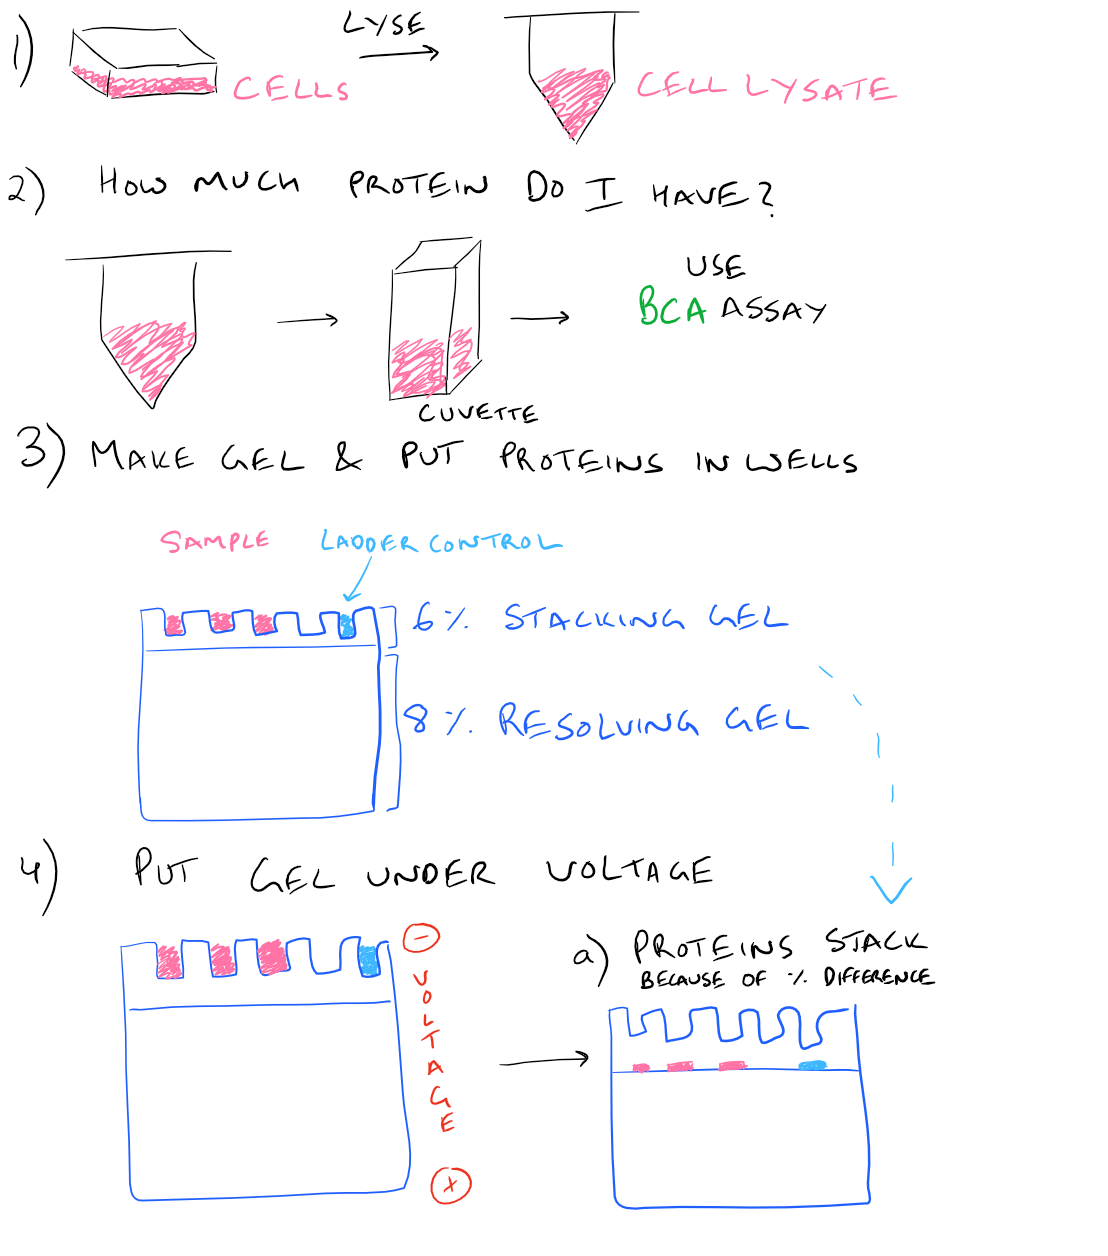 1)
LYSE
CELLS
CELL LYSATE
2) HOW MUCH PROTEIN DO I HAVE?
USE
BCA ASSAY
CUVETTE
3) MAKE GEL & PUT PROTEINS IN WELLS
SAMPLE
LADDER CONTROL
6 % STACKING GEL
8 % RESOLVING GEL
4) PUT GEL UNDER VOLTAGE
-
VOLTAGE
+
a) PROTEINS STACK
BECAUSE OF % DIFFERENCE